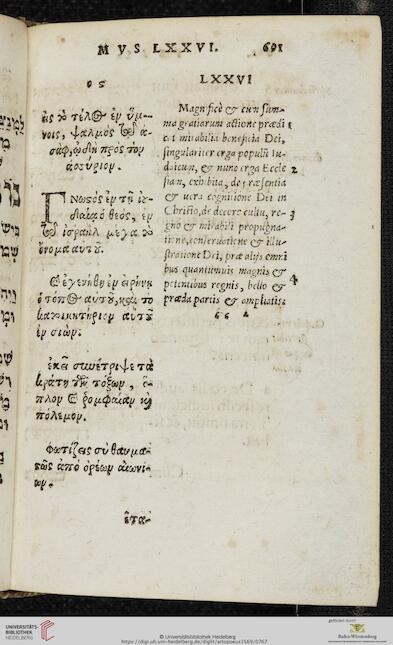 MVS LXXVI. 601
οϛ
εἰς τὸ τέλος ἐν ὕμ-
νοις, ψαλμὸς τῷ ἀ-
σάφ, ᾠδὴ πρὸς τὸν
ἀσσύριον.
Γνωστὸς ἐν τῇ ἰου-
δαίᾳ ὁ θεός, ἐν
τῷ ἰσραὴλ μέγα τὸ
ὄνομα αὐτοῦ.
Καὶ ἐγενήθη ἐν εἰρήνῃ
ὁ τόπος αὐτοῦ, καὶ τὸ
κατοικητήριον αὐτοῦ
ἐν σιών.
ἐκεῖ συνέτριψε τὰ
κράτη τῶν τόξων, ὅ-
πλον καὶ ῥομφαίαν καὶ
πόλεμον.
Φωτίζεις σὺ θαυμα-
στῶς ἀπὸ ὀρέων αἰωνί-
ων.
ἐτα-
LXXVI
Magnificè & cum sum-
ma gratiarum actione prædi
cat mirabilia beneficia Dei, 1
singulariter erga populū Iu-
daicum, & nunc erga Eccle 2
siam, exhibita, de præsentia
& uera cognitione Dei in
Christo, de decoro cultu, re- 3
gno & mirabili propugna-
tione, conseruatione & illu-
stratione Dei, præ alijs omni
bus quantumuis magnis & 4
potentibus regnis, bello &
præda partis & ampliatis.
UNIVERSITÄTS-
BIBLIOTHEK
HEIDELBERG
© Universitätsbibliothek Heidelberg
https://digi.ub.uni-heidelberg.de/diglit/artopoeus1569/0767
gefördert durch
Baden-Württemberg